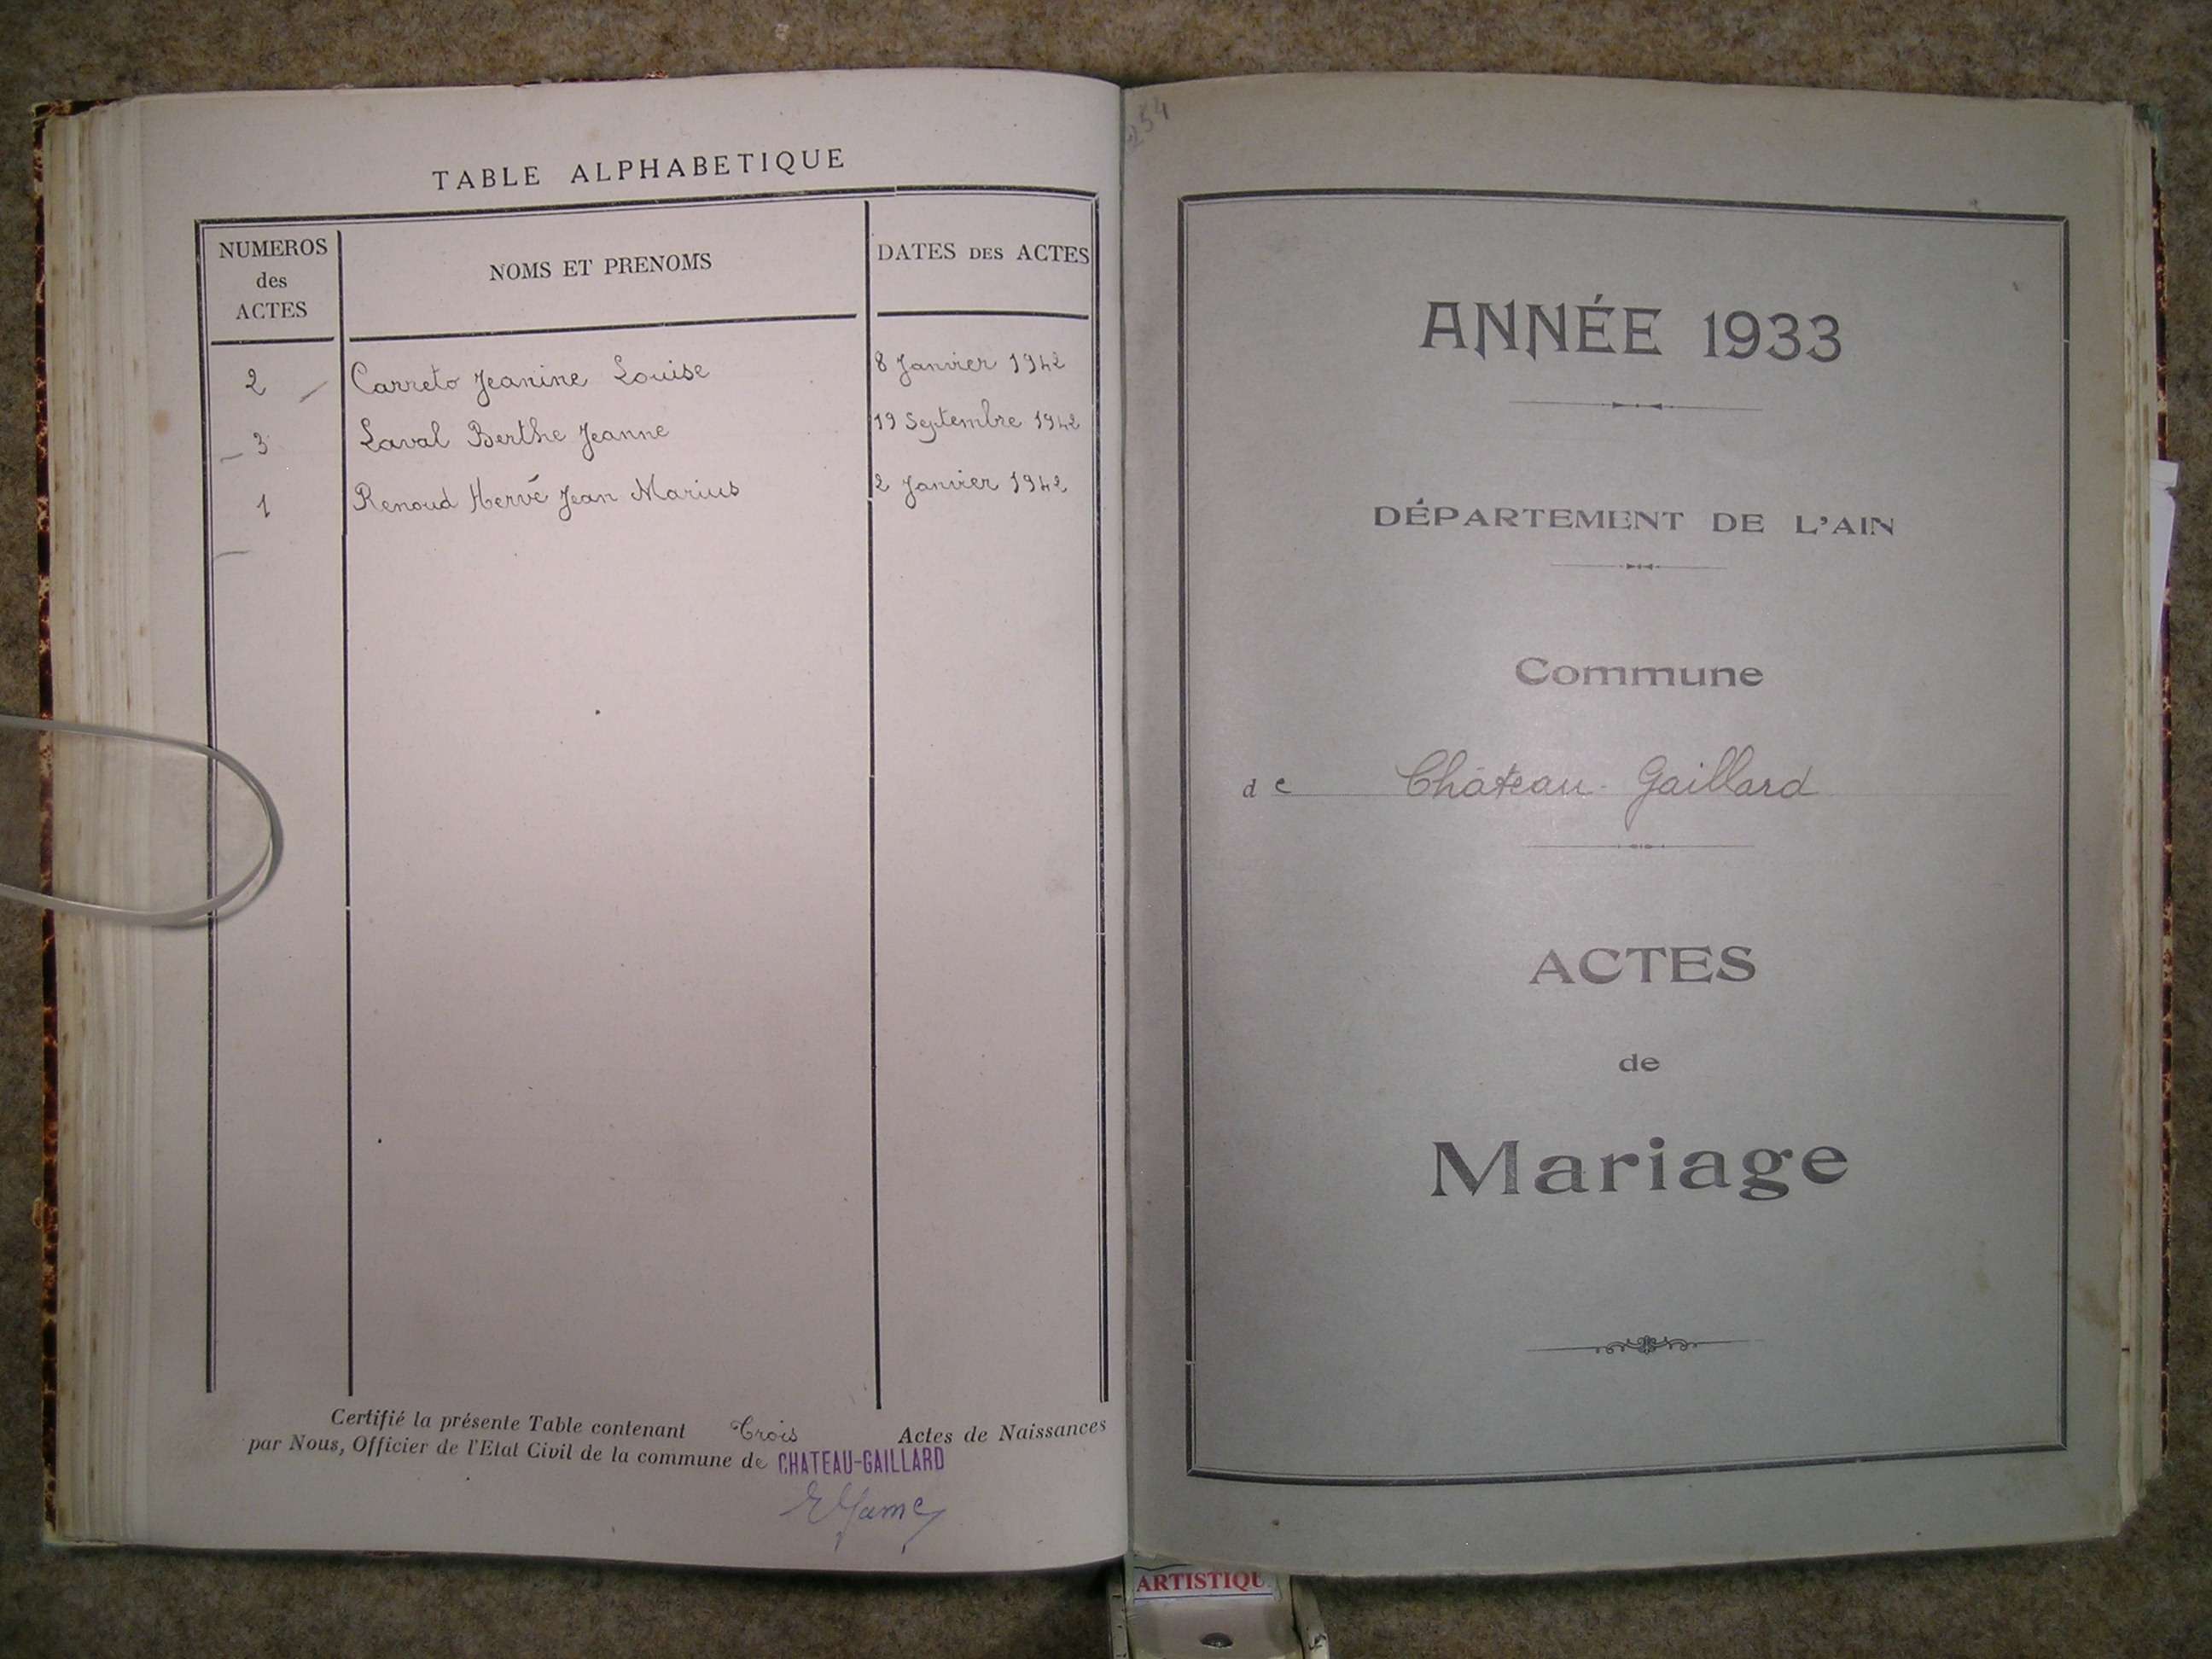 TABLE ALPHABETIQUE
NUMEROS
des
ACTES
NOMS ET PRENOMS
DATES DES ACTES
2 Carreto Jeanine Louise 8 Janvier 1942
3 Laval Berthe Jeanne 19 Septembre 1942
1 Renoud Hervé Jean Marius 2 Janvier 1942
Certifié la présente Table contenant Trois Actes de Naissances
par Nous, Officier de l'Etat Civil de la commune de CHATEAU-GAILLARD
254
ANNÉE 1933
DÉPARTEMENT DE L'AIN
Commune
de Château-Gaillard
ACTES
de
Mariage
ARTISTIQU